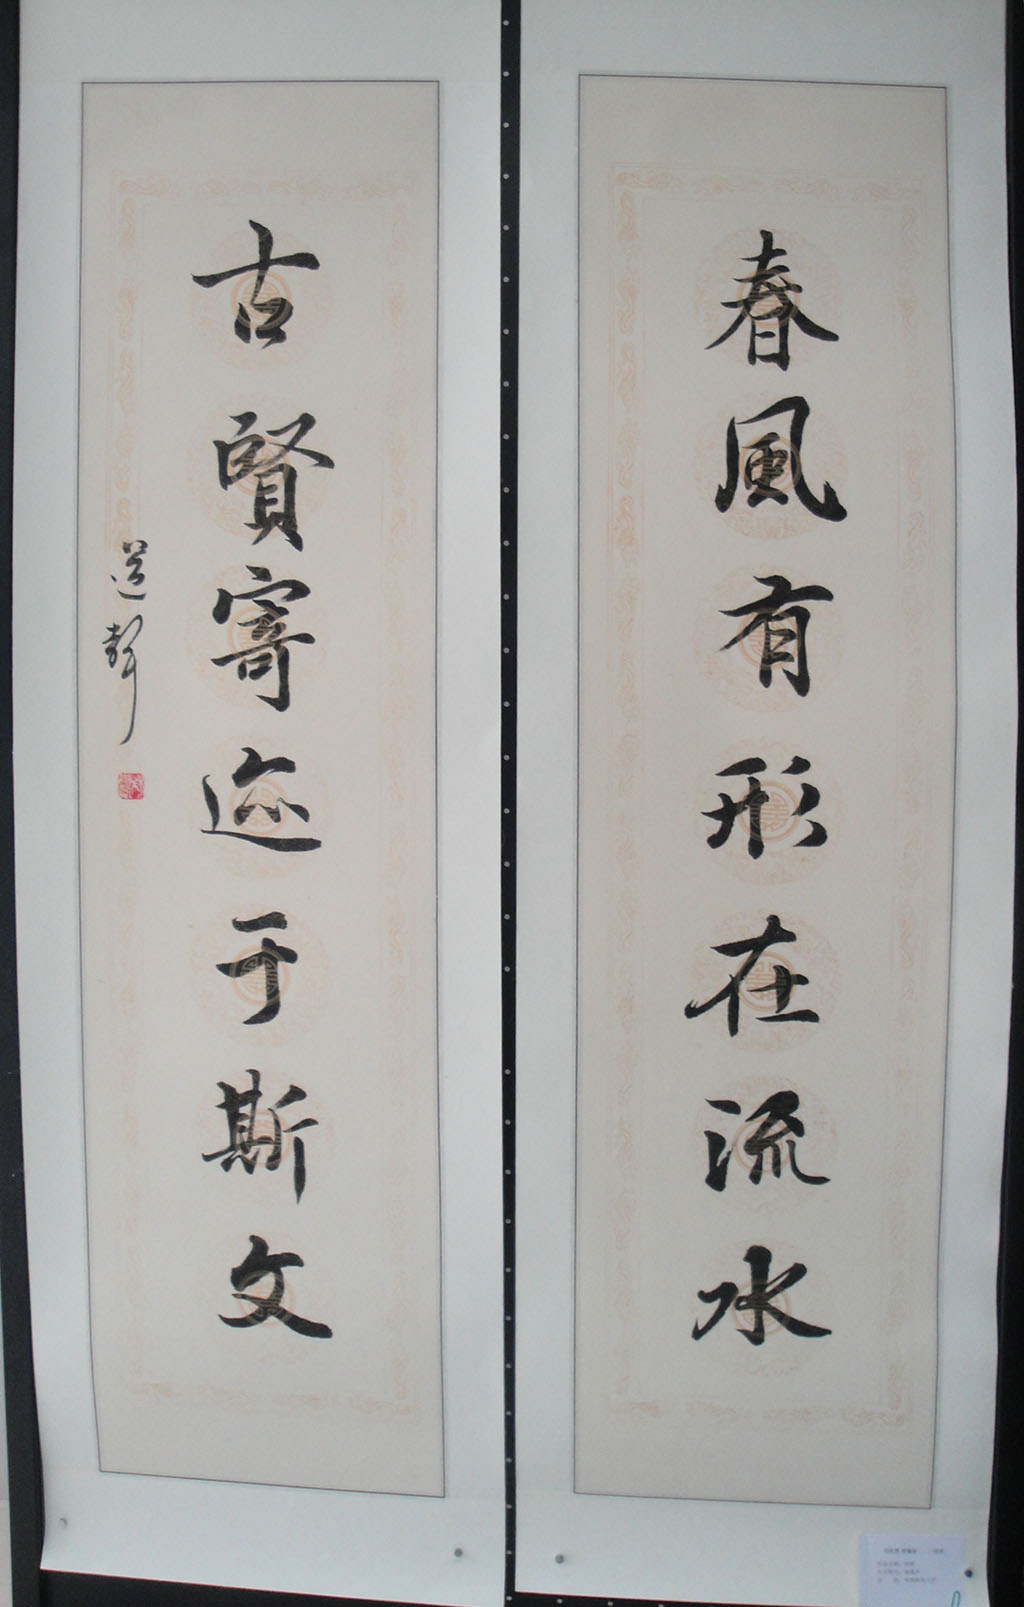 春風有形在流水
古賢寄迹于斯文
道聲